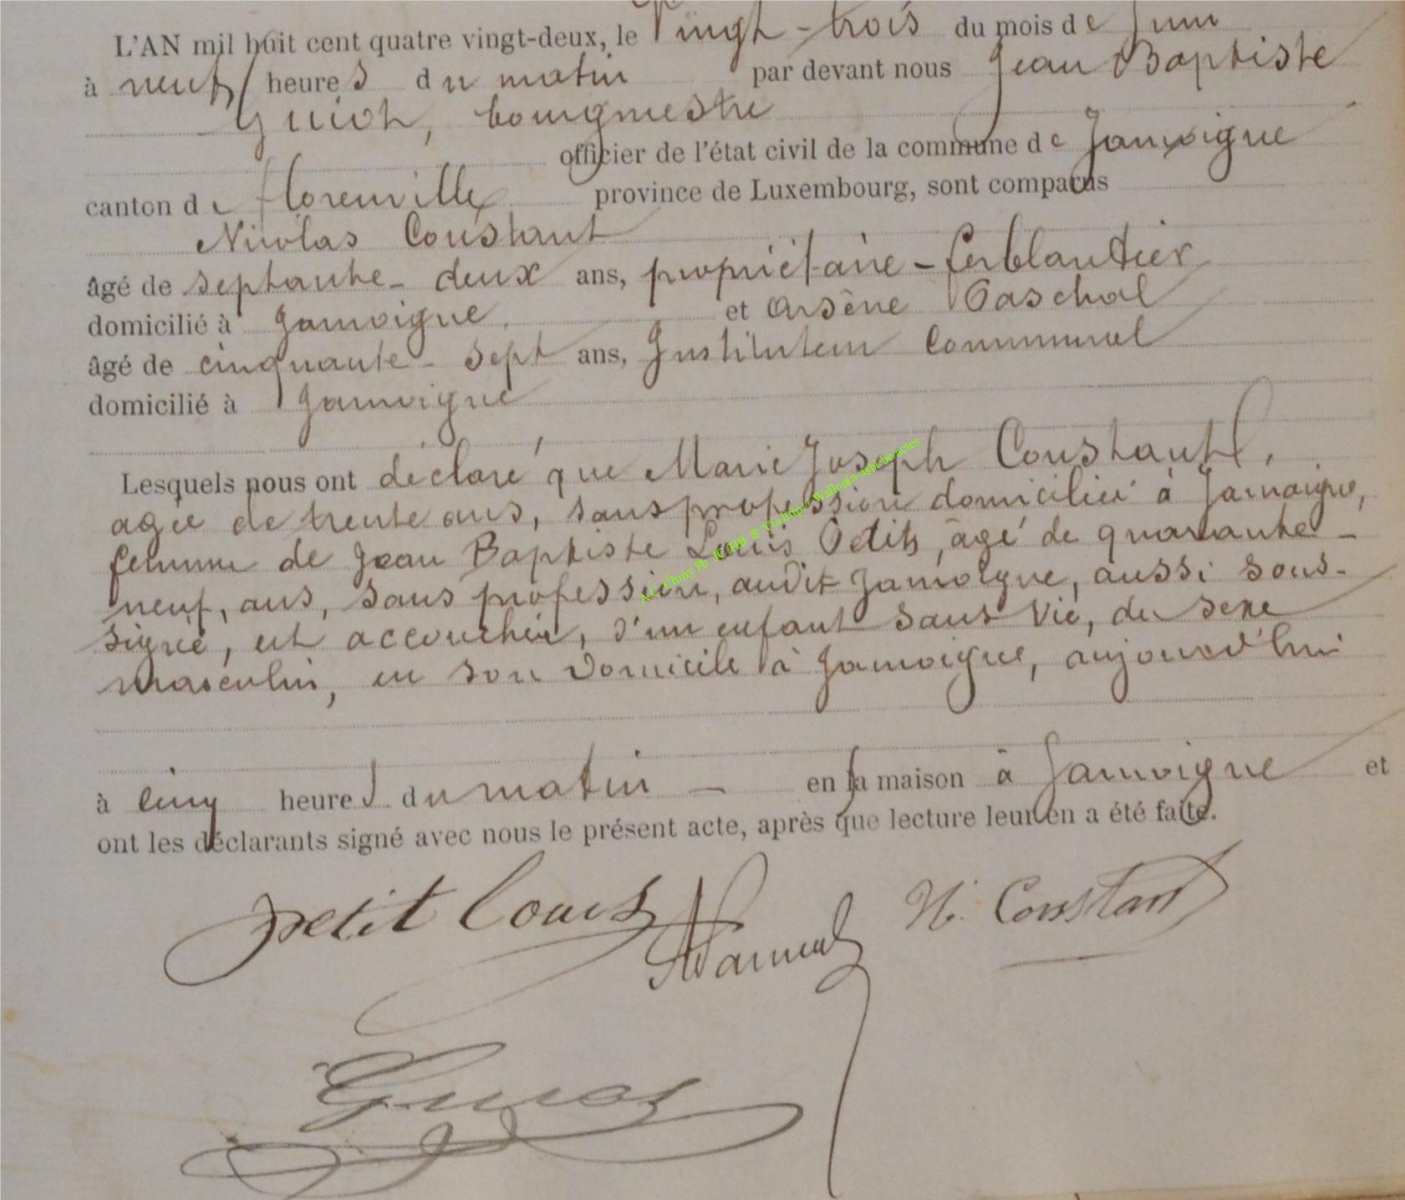 L'AN mil huit cent quatre vingt-deux, le Vingt-trois du mois de Juin
à neuf heures du matin par devant nous Jean Baptiste
Guiot, bourgmestre
officier de l'état civil de la commune de Jamoigne
canton de Florenville province de Luxembourg, sont comparus
Nicolas Constant
âgé de septante-deux ans, propriétaire-ferblantier
domicilié à Jamoigne, et Arsène Paschal
âgé de cinquante-sept ans, Instituteur Communal
domicilié à Jamoigne
Lesquels nous ont déclaré que Marie Joseph Constant,
agée de trente ans, sans profession domiciliée à Jamoigne,
femme de Jean Baptiste Louis Petit, âgé de quarante-
neuf, ans, sans profession, audit Jamoigne, aussi sous-
signé, est accouchée, d'un enfant sans vie, du sexe
masculin, en son domicile à Jamoigne, aujourd'hui
à cinq heures du matin - en sa maison à Jamoigne et
ont les déclarants signé avec nous le présent acte, après que lecture leur en a été faite.
Petit Louis N. Constant
Guiot